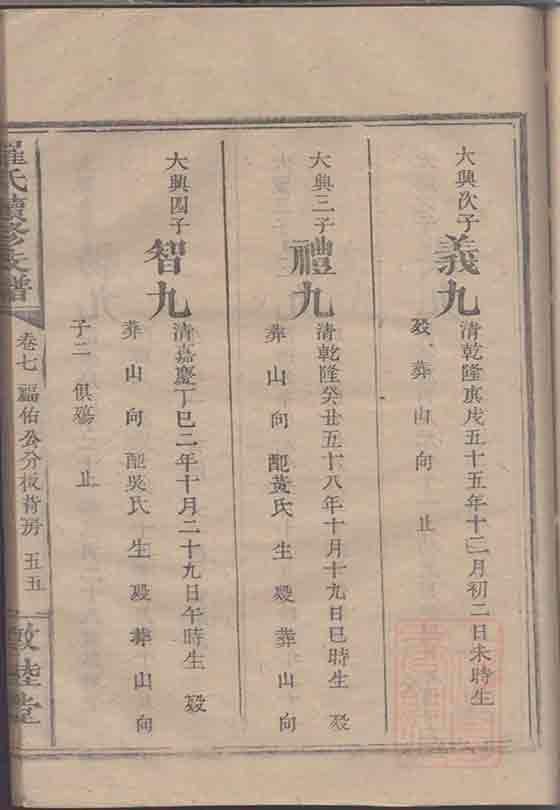 大興次子
義九
清乾隆庚戌五十五年十二月初二日未時生
歿 葬 山 向 止
大興三子
禮九
清乾隆癸丑五十八年十月十九日巳時生 歿
葬 山 向 配黃氏 生 歿 葬 山 向
大興四子
智九
清嘉慶丁巳二年十月二十九日午時生 歿
葬 山 向 配吳氏 生 歿 葬 山 向
子二 俱殤 止
羅氏續修支譜
卷七 福佑公分板背房 五五
敦睦堂